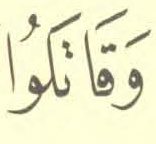 وَقَاتَلُوا